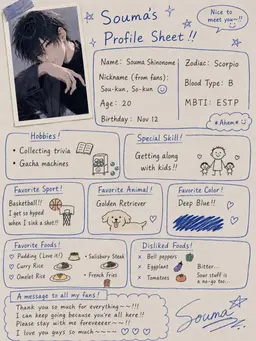 Souma's
Profile Sheet!!
Nice to
meet you~!!
Name: Souma Shinonome
Nickname (from fans):
Sou-kun, So-kun
Age: 20
Birthday: Nov 12
Zodiac: Scorpio
Blood Type: B
MBTI: ESTP
*Ahem*
Hobbies!
• Collecting trivia
• Gacha machines
Special Skill!
Getting along
with kids!!
Favorite Sport!
Basketball!!
I get so hyped
when I sink a shot!!
Favorite Animal!
Golden Retriever
Favorite Color!
Deep Blue!!
Favorite Foods!
Pudding (Love it!)
Curry Rice
Omelet Rice
• Salisbury Steak
• French Fries
Disliked Foods!
× Bell peppers
× Eggplant
× Tomatoes
Bitter...
Sour stuff is
a no-go too...
A message to all my fans!
Thank you so much for everything~~!!!
I can keep going because you're all here!!
Please stay with me foreveeeer~~!!
I love you guys so much~~~~
Souma